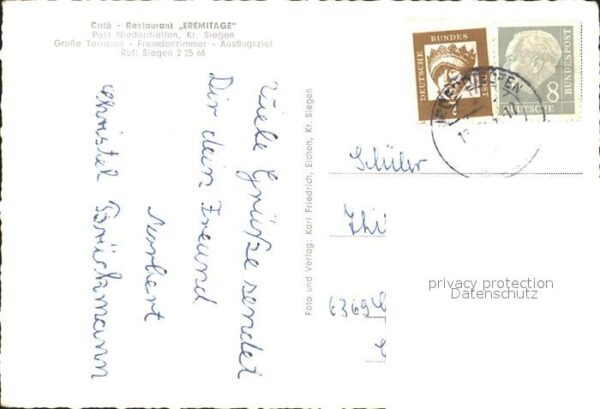 Café - Restaurant „EREMITAGE"
Post Niederdielfen, Kr. Siegen
Große Terrasse - Fremdenzimmer - Ausflugsziel
Ruf: Siegen 2 25 66
Viele Grüße sendet
Dir dein Freund
Norbert
Christel Brückmann
Foto und Verlag: Karl Friedrich, Eichen, Kr. Siegen
DEUTSCHE BUNDES
DEUTSCHE BUNDESPOST
8
Schüler
privacy protection
Datenschutz